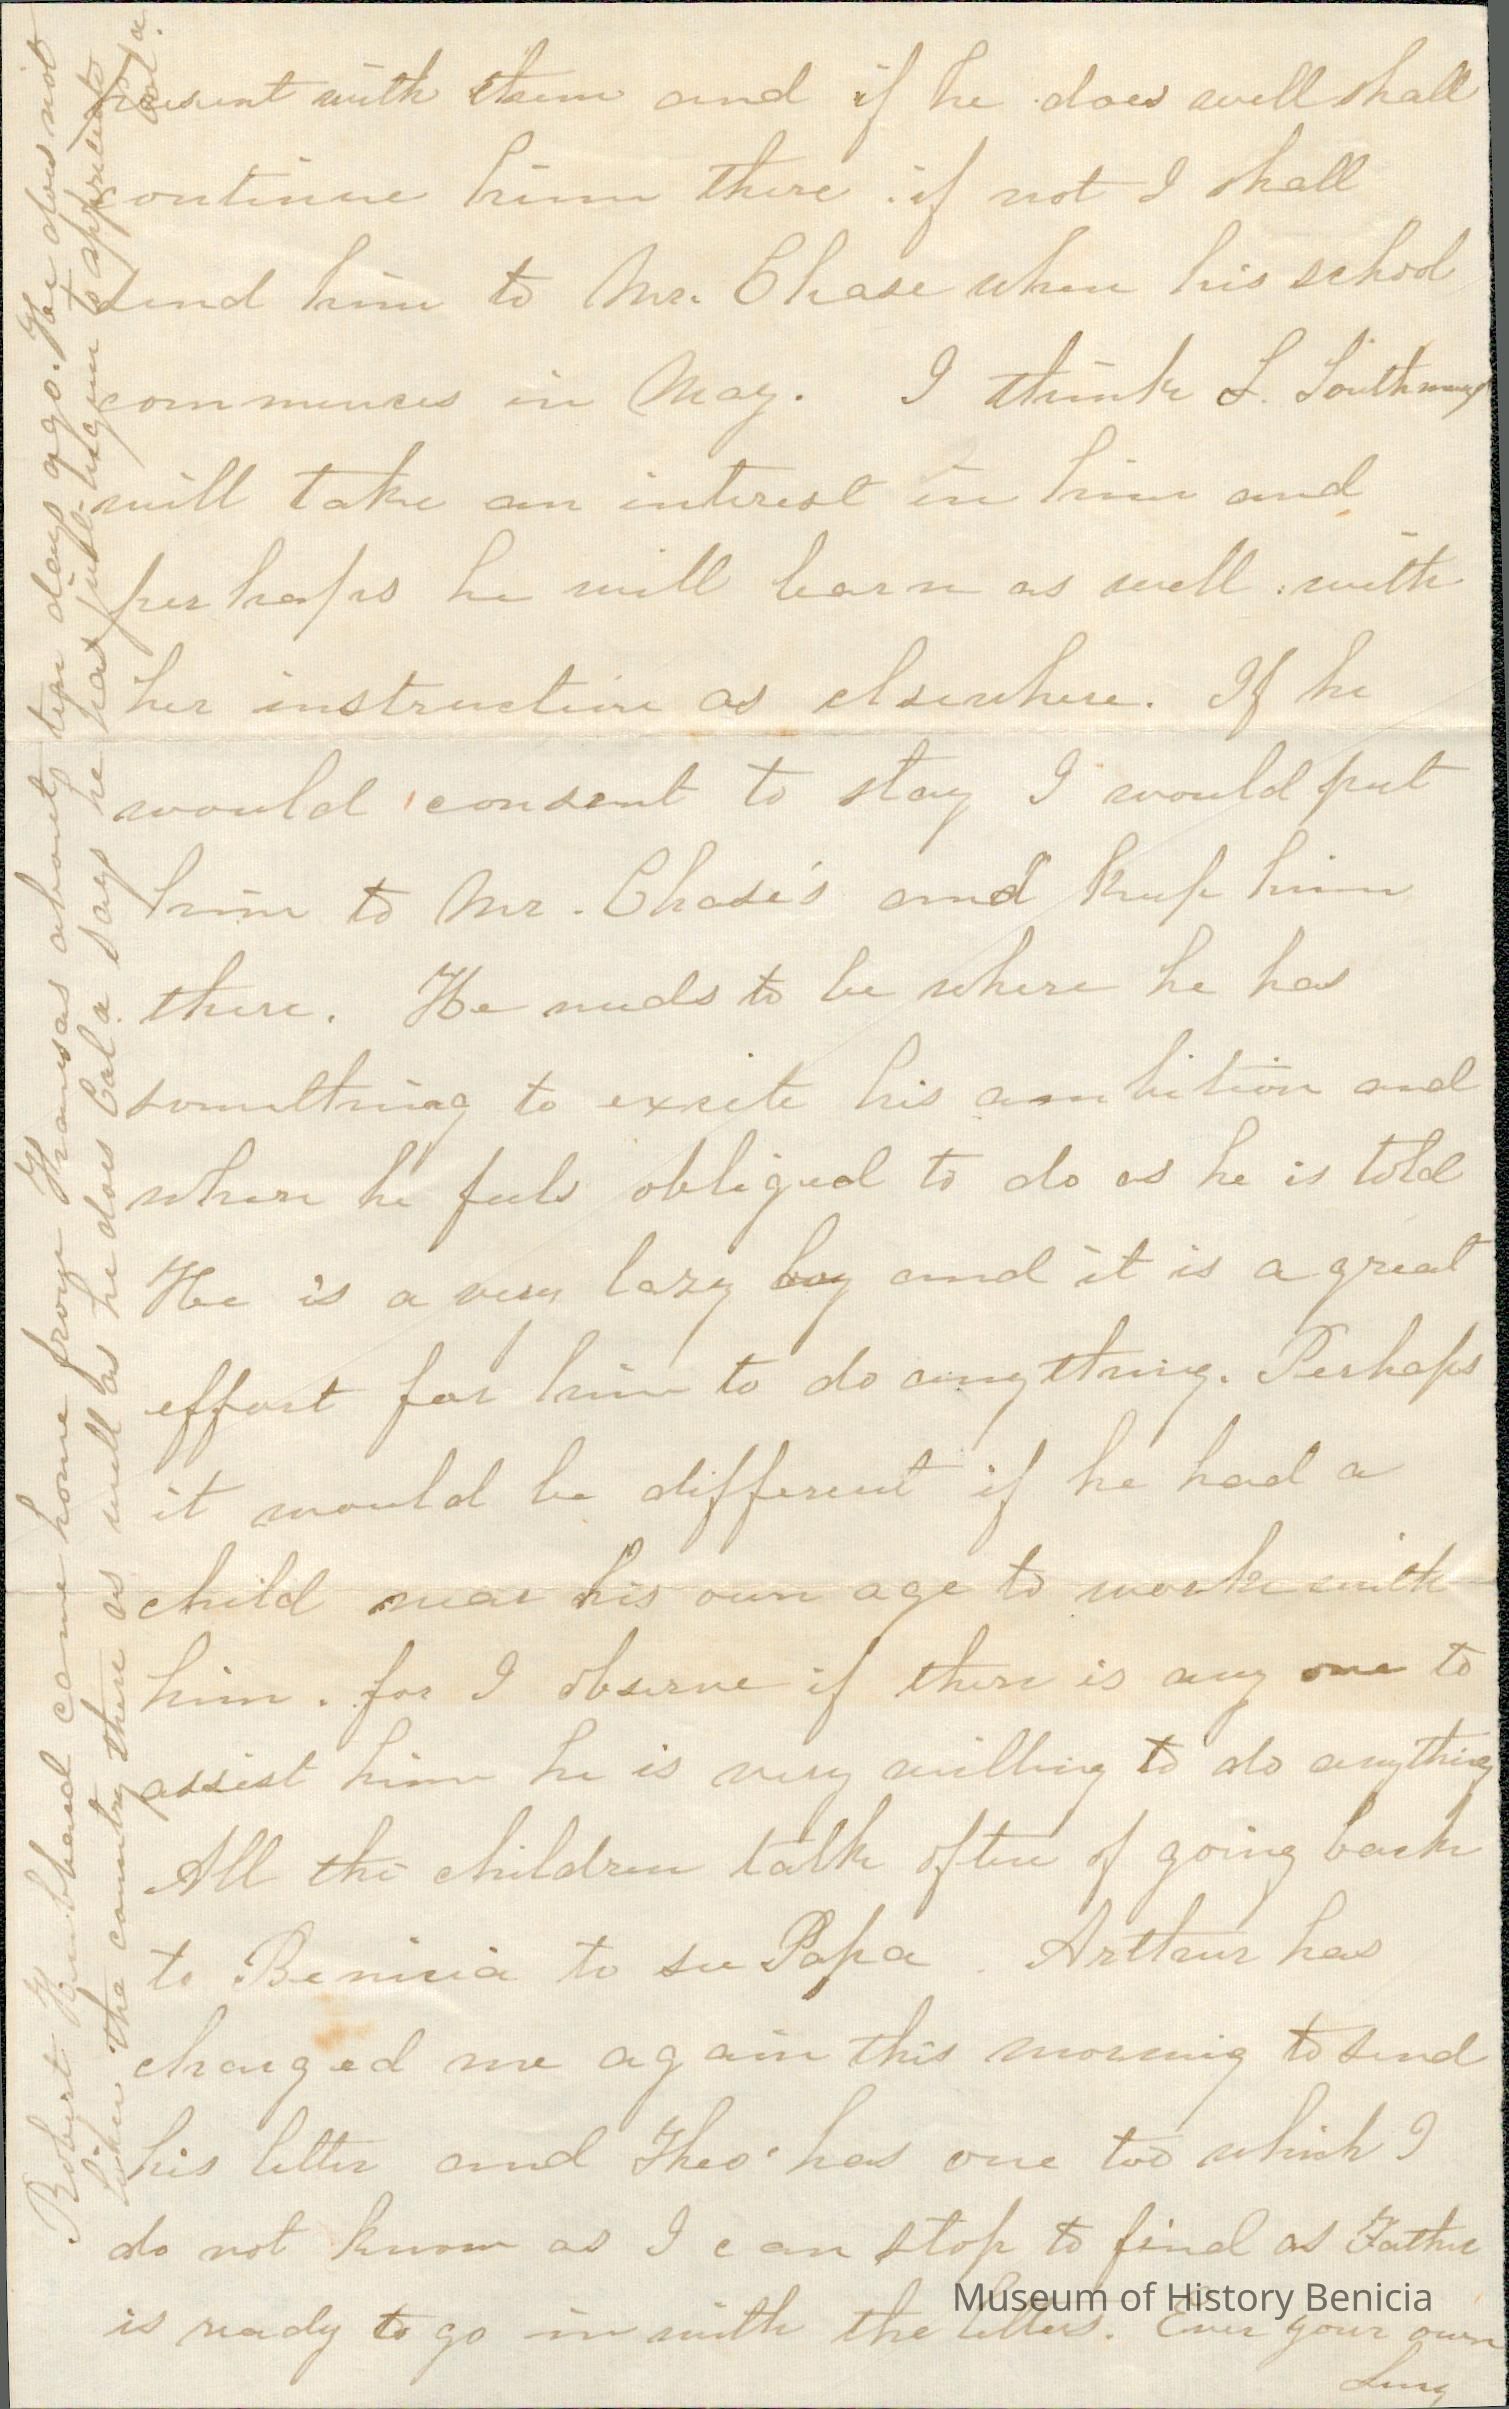 present with them and if he does well shall
continue him there . if not I shall
send him to Mr. Chase when his school
commences in May. I think L. Southmayd
will take an interest in him and
perhaps he will learn as well . with
her instruction as elsewhere. If he
would consent to stay I would put
him to Mr. Chase's and keep him
there. He needs to be where he has
something to excite his ambition and
where he feels obliged to do as he is told
He is a very lazy boy and it is a great
effort for him to do anything. Perhaps
it would be different if he had a
child near his own age to work with
him . for I observe if there is any one to
assist him he is very willing to do anything
All the children talk often of going back
to Benicia to see Papa . Arthur has
charged me again this morning to send
his letter and Theo. has one too which I
do not know as I can stop to find as Father
is ready to go in with the letters. Ever your own
Lucy
Robert Hubbard came home from Kansas about ten days ago. He does not
liken the country there as well as he does Cala. says he has just begun to appreciate
Cala.
Museum of History Benicia